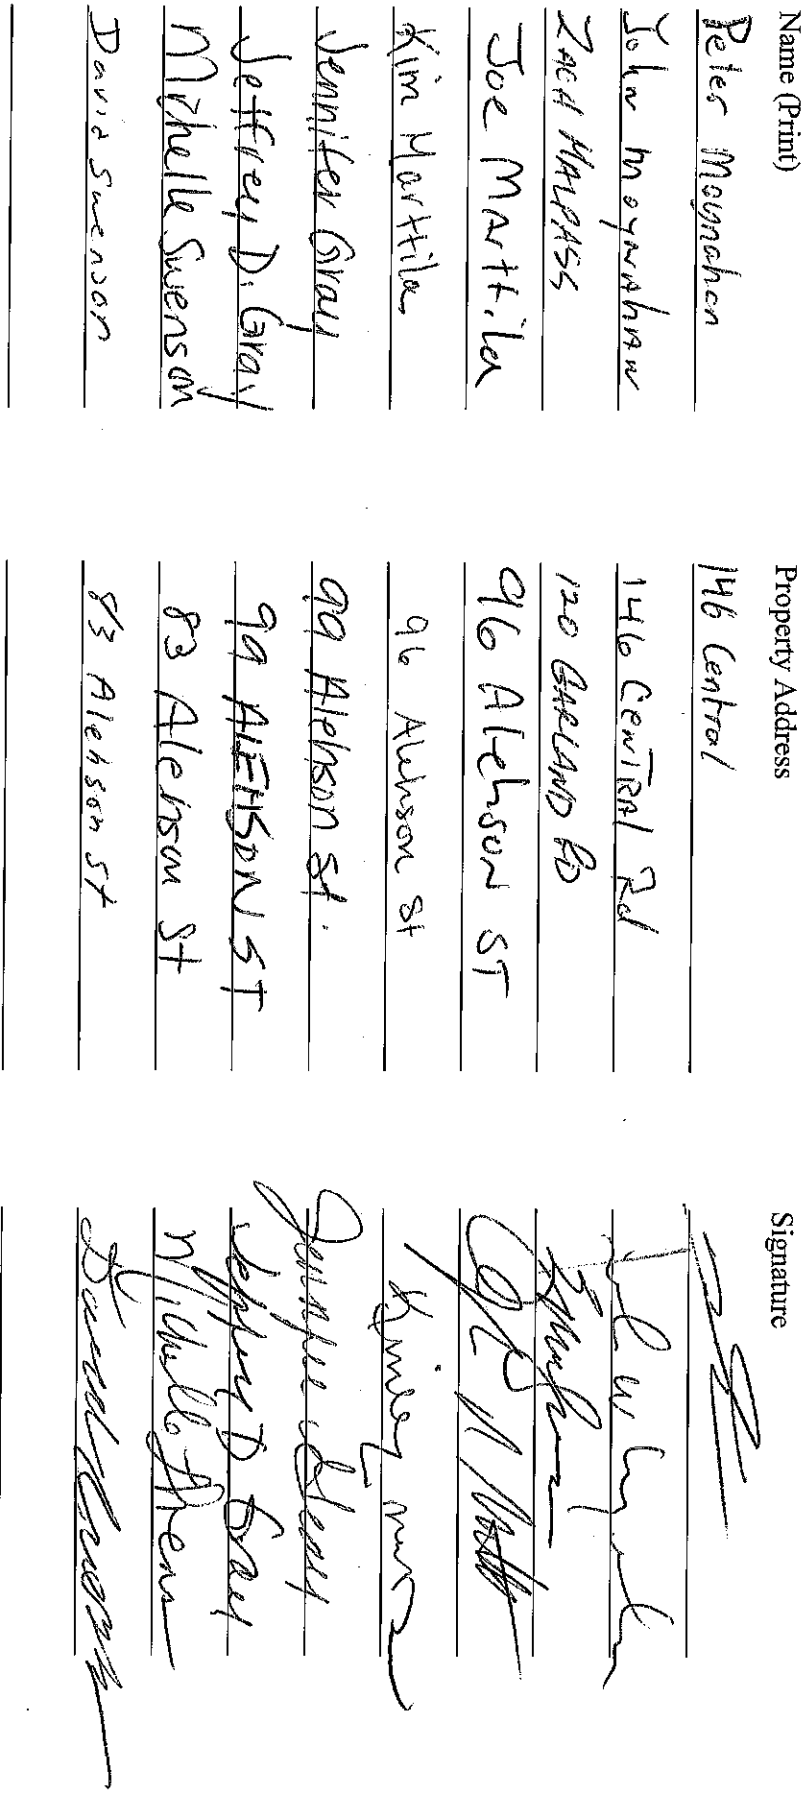 Name (Print) Property Address Signature
Peter Moynahan 146 Central
John Moynahan 146 Central Rd
ZACH MALPASS 120 GARLAND RD
Joe Marttila 96 Alehson ST
Kim Marttila 96 Alehson St
Jennifer Gray 99 Alehson St. Jennifer Gray
Jeffrey D. Gray 99 ALEHSON ST Jeffrey D Gray
Michelle Swenson 83 Alehson St Michelle
David Swenson 83 Alehson St David